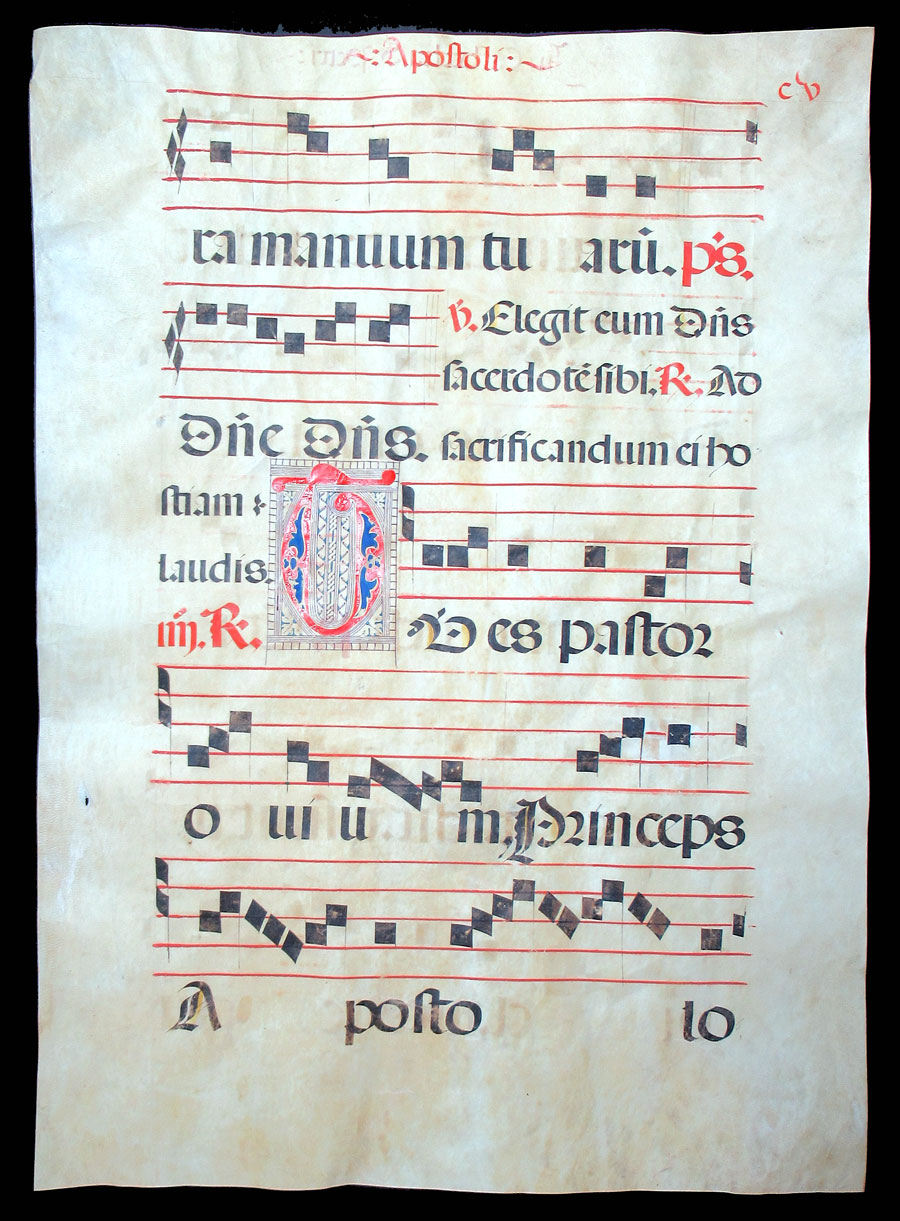 Apostoli
cv
ra manuum tu arū. ps.
℣. Elegit eum Dñs
sacerdotē sibi. ℟. Ad
Dñe Dñs. sacrificandum ei ho
stiam
laudis.
iiij. ℟. TU es pastor
o ui u m. Princeps
A posto lo